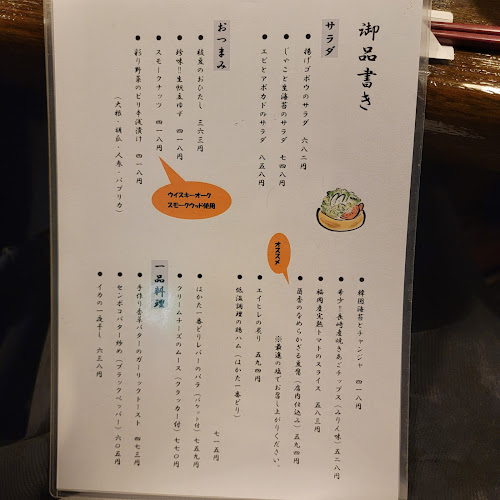 御品書き
サラダ
● 揚げゴボウのサラダ 六八二円
● じゃこと生海苔のサラダ 七四八円
● エビとアボカドのサラダ 八五八円
おつまみ
● 枝豆のおひたし 三六三円
● 珍味!!生帆立ゆず 四一八円
● スモークナッツ 四一八円
ウイスキーオーク
スモークウッド使用
● 彩り野菜のピリ辛浅漬け 四一八円
(大根・胡瓜・人参・パプリカ)
● 韓国海苔とチャンジャ 四一八円
● 希少!長崎産焼きあごチップス(みりん味)五二八円
● 福岡産完熟トマトのスライス 五八三円
オススメ
● 茴香のなめらかざる豆腐(店内仕込み)五九四円
● エイヒレの炙り 五九四円
※最適の塩でお召し上がりください。
● 低温調理の鶏ハム(はかた一番どり)
七一五円
● はかた一番どりレバーのパテ(バケット付)七五九円
● クリームチーズのムース(クラッカー付)七七〇円
一品料理
● 手作り香草バターのガーリックトースト 四七三円
● センボコバター炒め(ブラックペッパー)六〇五円
● イカの一夜干し 六三八円